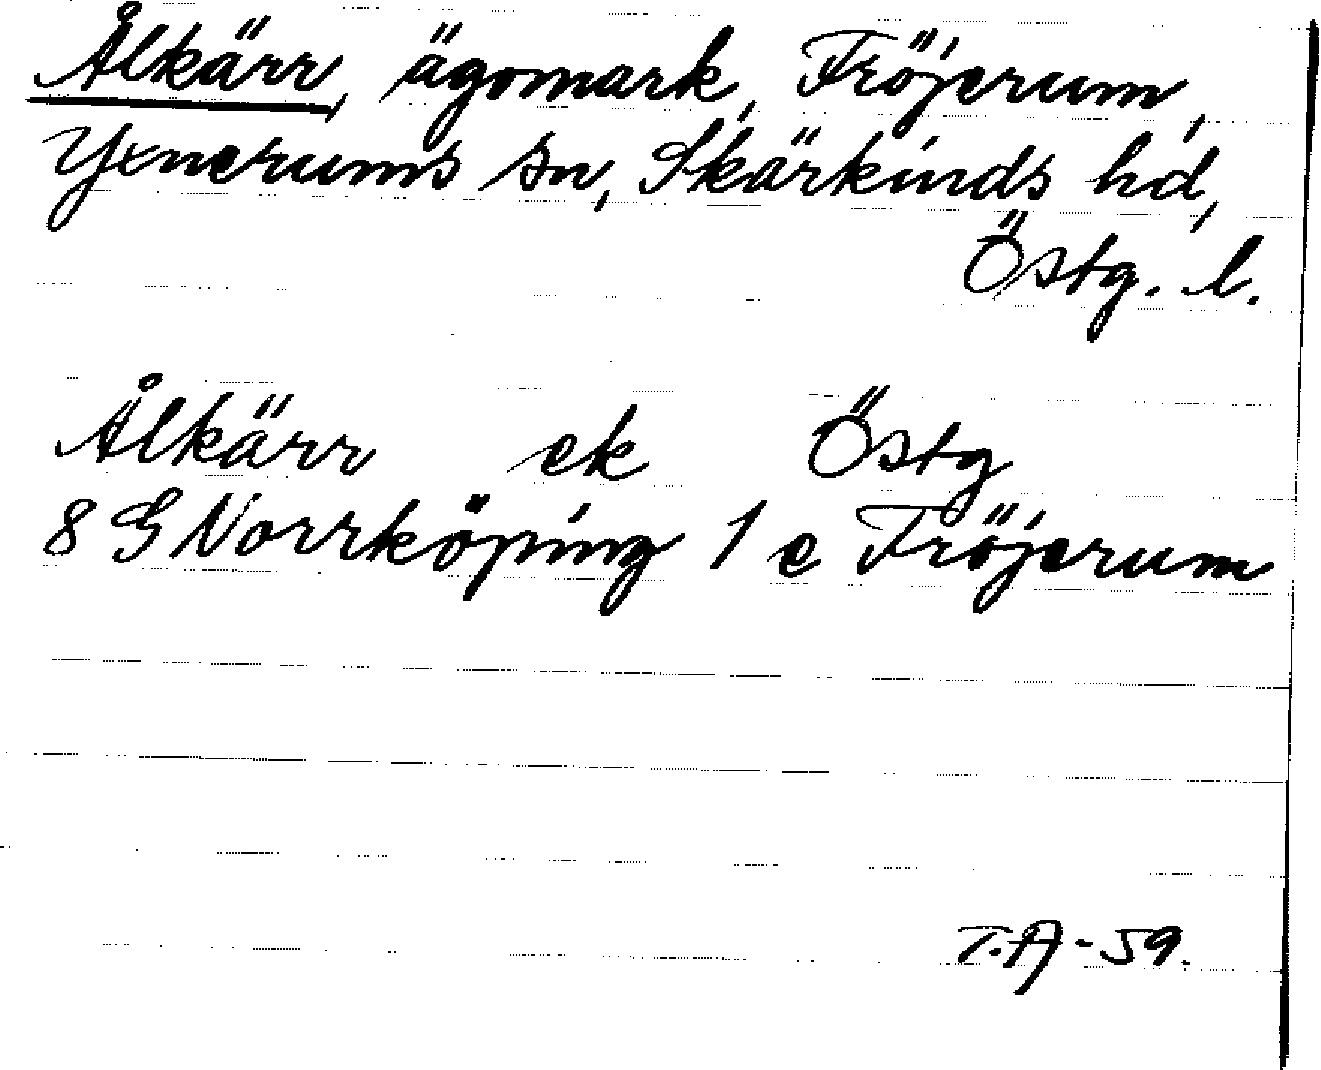 Ålkärr, ägomark, Fröjerum,
Yxnerums sn, Skärkinds hd,
Östg. l.
Ålkärr ek Östg
8 G Norrköping 1 e Fröjerum
T.A-59.